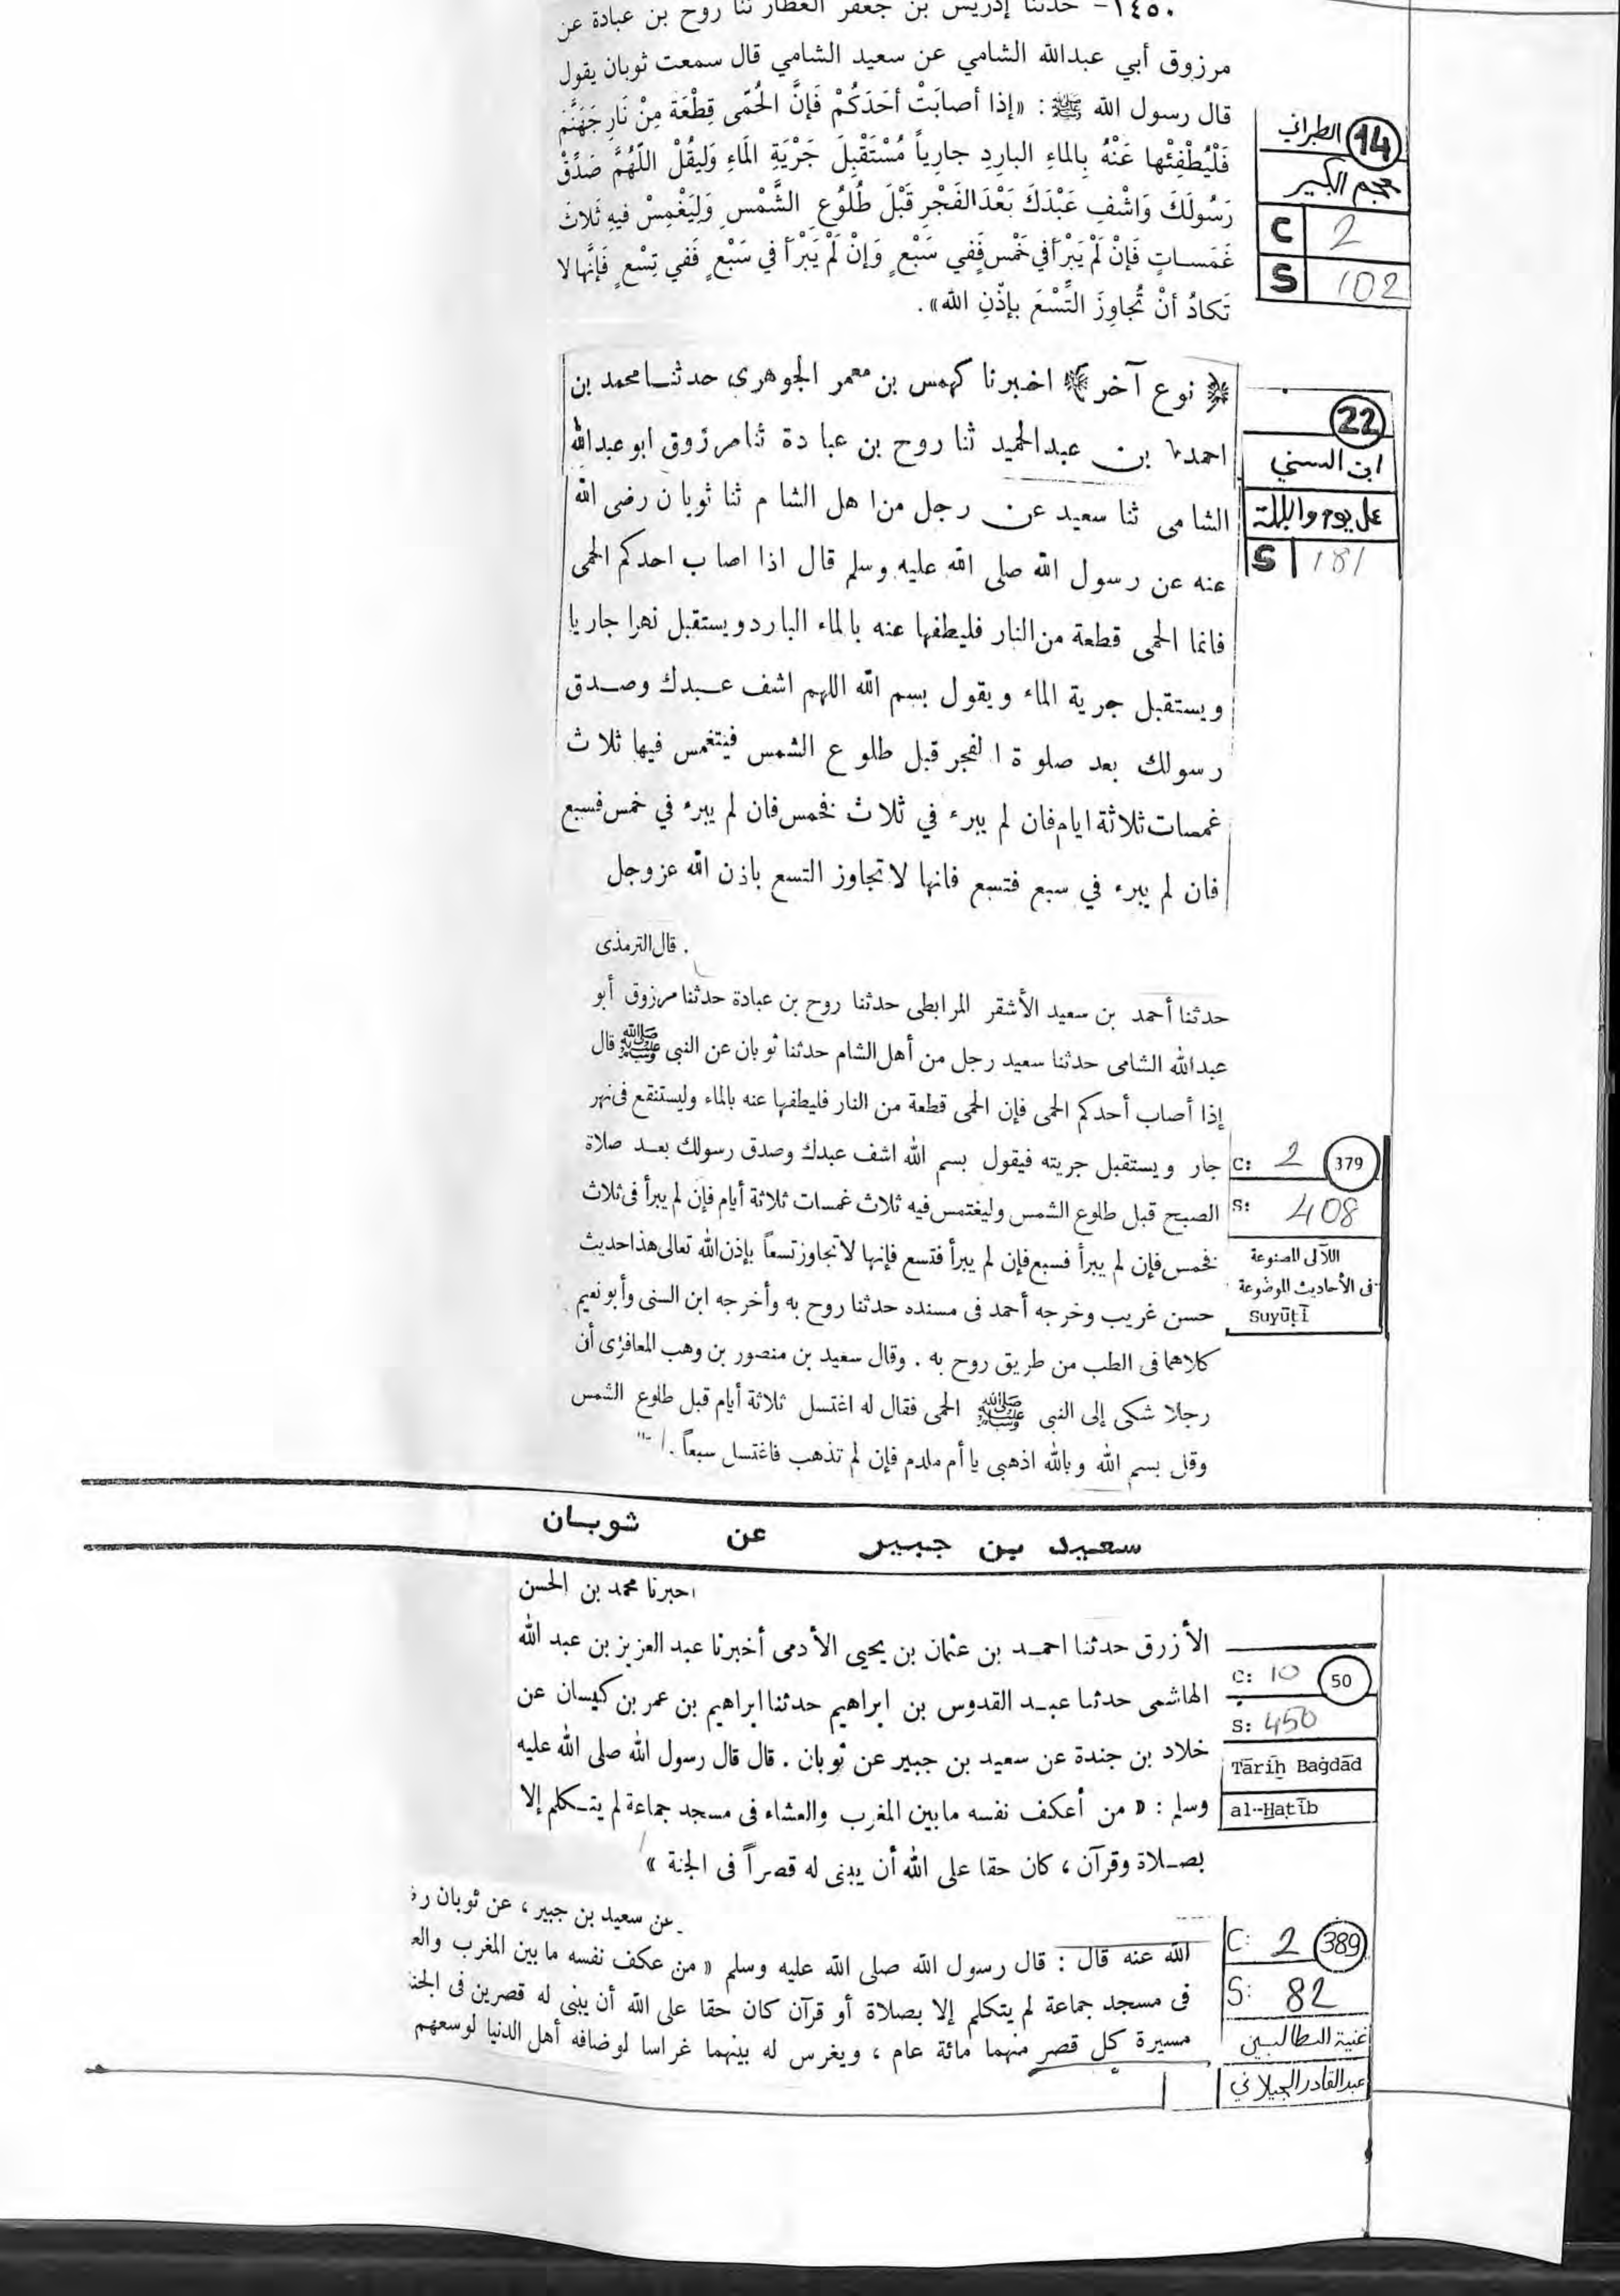 ١٤٥٠- حدثنا إدريس بن جعفر العطار ثنا روح بن عبادة عن
مرزوق أبي عبدالله الشامي عن سعيد الشامي قال سمعت ثوبان يقول
قال رسول الله ﷺ : «إذا أصابَتْ أحَدَكُمْ فَإنَّ الحُمّى قِطْعَة مِنْ نَارِ جَهَنَّمَ
فَلْيُطْفِئْها عَنْهُ بِالماءِ البارِدِ جارِياً مُسْتَقْبِلَ جَرْيَةِ الَماءِ وَليقُلْ اللّهُمَّ صَدِّقْ
رَسُولَكَ وَاشْفِ عَبْدَكَ بَعْدَ الفَجْرِ قَبْلَ طُلُوُعِ الشَّمْسِ وَلِيَغْمِسْ فيهِ ثَلاثَ
غَمَساتٍ فَإنْ لَمْ يَبْرَأ في خَمْسٍ فَفي سَبْعٍ وَإنْ لَمْ يَبْرَأ في سَبْعٍ فَفي تِسْعٍ فَإنَّها لا
تَكادُ أنْ تُجاوِزَ التِّسْعَ بإذْنِ الله» .
14 الطبراني
معجم الكبير
C 2
S 102
﴿ نوع آخر ﴾ اخبرنا كهمس بن معمر الجوهرى حدثنا محمد بن
احمد بن عبدالحميد ثنا روح بن عبادة ثنا مرزوق ابو عبدالله
الشامى ثنا سعيد عن رجل من اهل الشام ثنا ثوبان رضى الله
عنه عن رسول الله صلى الله عليه وسلم قال اذا اصاب احدكم الحمى
فانما الحمى قطعة من النار فليطفها عنه بالماء البارد ويستقبل نهرا جاريا
ويستقبل جرية الماء ويقول بسم الله اللهم اشف عبدك وصدق
رسولك بعد صلوة الفجر قبل طلوع الشمس فيتغمس فيها ثلاث
غمسات ثلاثة ايام فان لم يبرء في ثلاث فخمس فان لم يبرء في خمس فسبع
فان لم يبرء في سبع فتسع فانها لا تجاوز التسع باذن الله عز وجل
22
ابن السني
عمل يوم والليلة
S 181
. قال الترمذى
حدثنا أحمد بن سعيد الأشقر المرابطى حدثنا روح بن عبادة حدثنا مرزوق أبو
عبدالله الشامى حدثنا سعيد رجل من أهل الشام حدثنا ثوبان عن النبى ﷺ قال
إذا أصاب أحدكم الحمى فإن الحمى قطعة من النار فليطفها عنه بالماء وليستنقع فى نهر
جار ويستقبل جريته فيقول بسم الله اشف عبدك وصدق رسولك بعد صلاة
الصبح قبل طلوع الشمس وليغتمس فيه ثلاث غمسات ثلاثة أيام فإن لم يبرأ فى ثلاث
فخمس فإن لم يبرأ فسبع فإن لم يبرأ فتسع فإنها لا تجاوز تسعاً بإذن الله تعالى هذا حديث
حسن غريب وخرجه أحمد فى مسنده حدثنا روح به وأخرجه ابن السنى وأبو نعيم
كلاهما فى الطب من طريق روح به . وقال سعيد بن منصور بن وهب المعافرى أن
رجلا شكى إلى النبى ﷺ الحمى فقال له اغتسل ثلاثة أيام قبل طلوع الشمس
وقل بسم الله وبالله اذهبى يا أم ملدم فإن لم تذهب فاغتسل سبعاً .
C: 2 379
S: 408
اللآلى المصنوعة
فى الأحاديث الموضوعة
Suyūṭī
سعيد بن جبير عن ثوبان
اخبرنا محمد بن الحسن
الأزرق حدثنا احمد بن عثمان بن يحيى الأدمى أخبرنا عبد العزيز بن عبد الله
الهاشمى حدثنا عبد القدوس بن ابراهيم حدثنا ابراهيم بن عمر بن كيسان عن
خلاد بن جندة عن سعيد بن جبير عن ثوبان . قال قال رسول الله صلى الله عليه
وسلم : « من أعكف نفسه مابين المغرب والعشاء فى مسجد جماعة لم يتكلم إلا
بصلاة وقرآن ، كان حقا على الله أن يبنى له قصراً فى الجنة »
C: 10 50
S: 450
Tārīḫ Baġdād
al-Ḫaṭīb
عن سعيد بن جبير ، عن ثوبان
الله عنه قال : قال رسول الله صلى الله عليه وسلم « من عكف نفسه ما بين المغرب
فى مسجد جماعة لم يتكلم إلا بصلاة أو قرآن كان حقا على الله أن يبنى له قصرين فى
مسيرة كل قصر منهما مائة عام ، ويغرس له بينهما غراسا لو ضافه أهل الدنيا لوسعهم
C: 2 389
S: 82
غنية الطالبين
عبدالقادر الجيلاني